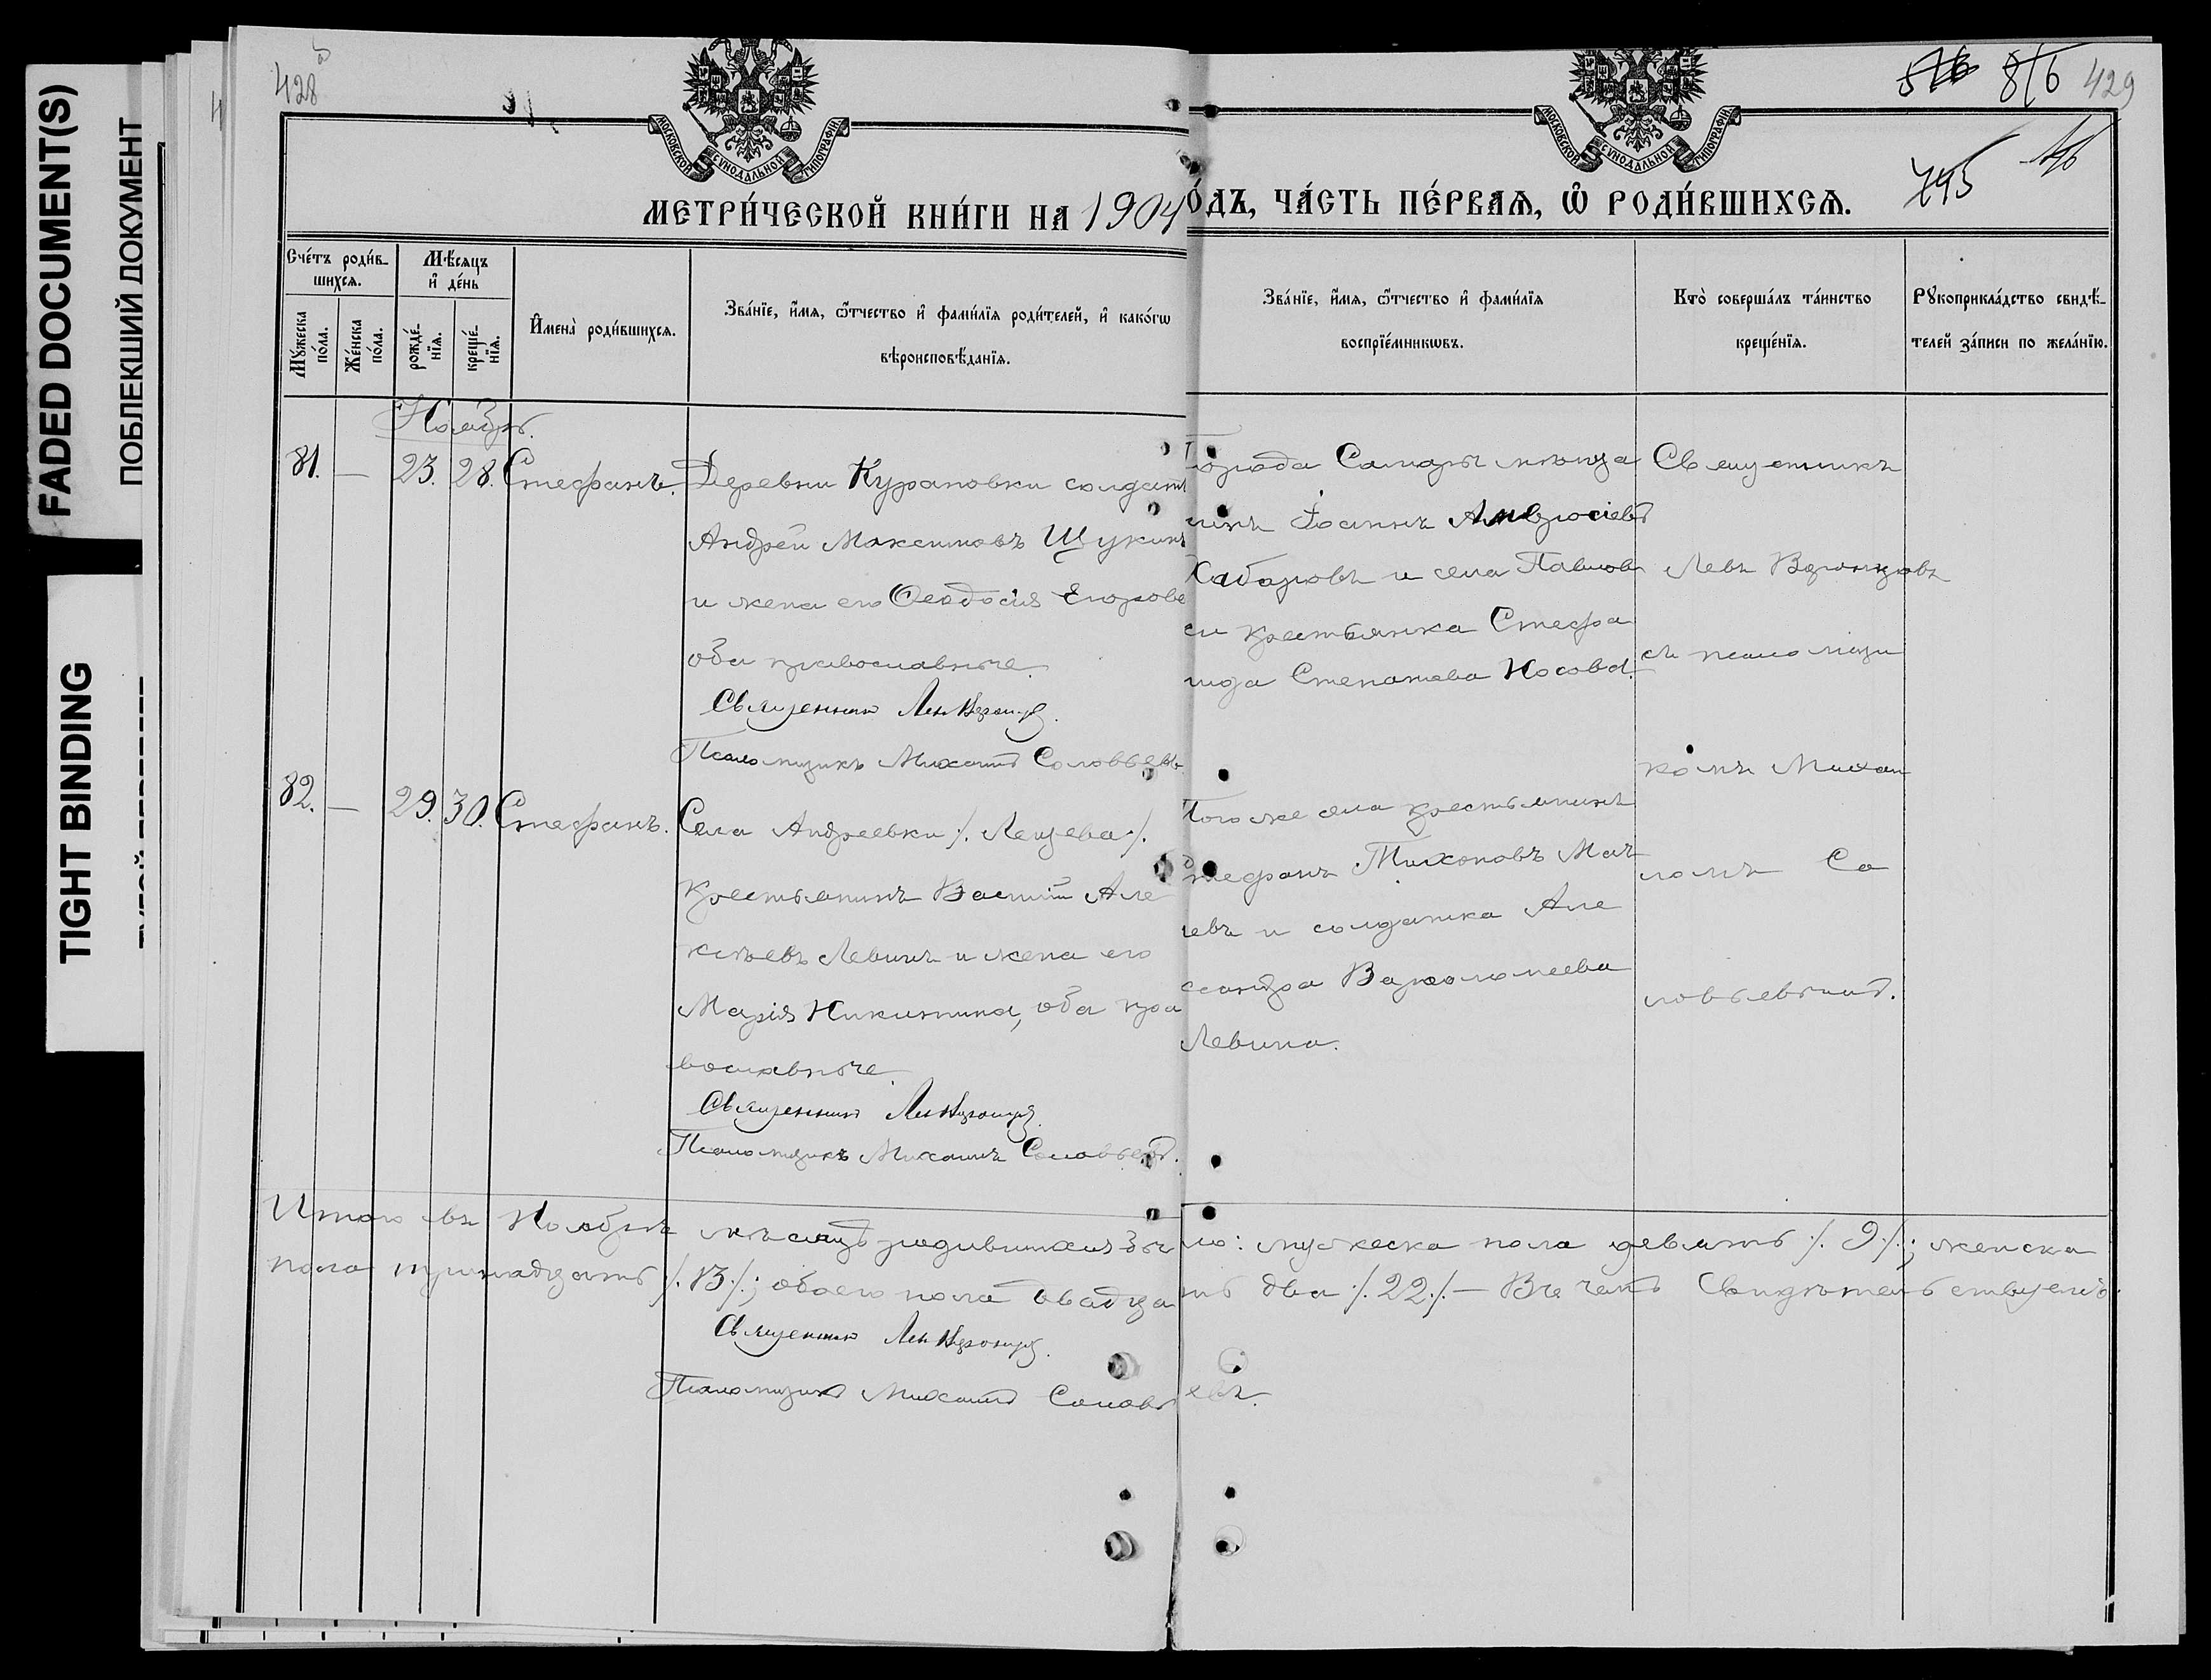 FADED DOCUMENT(S)
ПОБЛЕКШИЙ ДОКУМЕНТ
TIGHT BINDING
428
876 429
795
МОСКОВСКОЙ СѴНОДАЛЬНОЙ ТИПОГРАФІИ
МОСКОВСКОЙ СѴНОДАЛЬНОЙ ТИПОГРАФІИ
МЕТРИ́ЧЕСКОЙ КНИ́ГИ НА 1904
О́ДЪ, ЧА́СТЬ ПЕ́РВАЯ, Ѡ РОДИ́ВШИХСЯ.
Сче́тъ роди́в-
шихся.
Мѣ́сяцъ
и де́нь
Мꙋ́жеска
по́ла.
Же́нска
по́ла.
рожде́-
нїя.
креще́-
нїя.
Имена̀ роди́вшихся.
Зва́нїе, и́мя, ѻ́тчество и фами́лїя роди́телей, и како́гѡ
вѣроисповѣ́данїя.
Зва́нїе, и́мя, ѻ́тчество и фами́лїя
воспрїе́мникѡвъ.
Кто̀ соверша́лъ та́инство
креще́нїя.
Рꙋкоприкла́дство свидѣ́-
телей за́писи по жела́нїю.
Ноябрь.
81. — 23. 28. Стефанъ.
Деревни Курановки солдатъ
Андрей Максимовъ Щукинъ
и жена его Ѳеодосія Егорова
оба православные.
Священникъ Левъ Воронцовъ.
Псаломщикъ Михаилъ Соловьевъ
Города Самары мѣща
нинъ Іоаннъ Амвросіевъ
Хабаровъ и села Павлов
ки крестьянка Стефа
нида Степанова Носова.
Священникъ
Левъ Воронцовъ
съ псаломщи
комъ Михаи
ломъ Со
ловьевымъ.
82. — 29. 30. Стефанъ.
Села Андреевки /. Лещева /.
крестьянинъ Василій Але
ксѣевъ Левинъ и жена его
Марія Никитина, оба пра
вославные.
Священникъ Левъ Воронцовъ.
Псаломщикъ Михаилъ Соловьевъ.
Того же села крестьянинъ
Стефанъ Тихоновъ
и солдатка Але
ксандра Варѳоломеева
Левина.
Итого въ Ноябрѣ мѣсяцѣ родившихся бы
ло: мужеска пола девять /. 9 /.; женска
пола тринадцать /. 13 /.; обоего пола двадца
ть два /. 22 /. — Въ чемъ Свидѣтельствуемъ.
Священникъ Левъ Воронцовъ.
Псаломщикъ Михаилъ Соловьевъ.